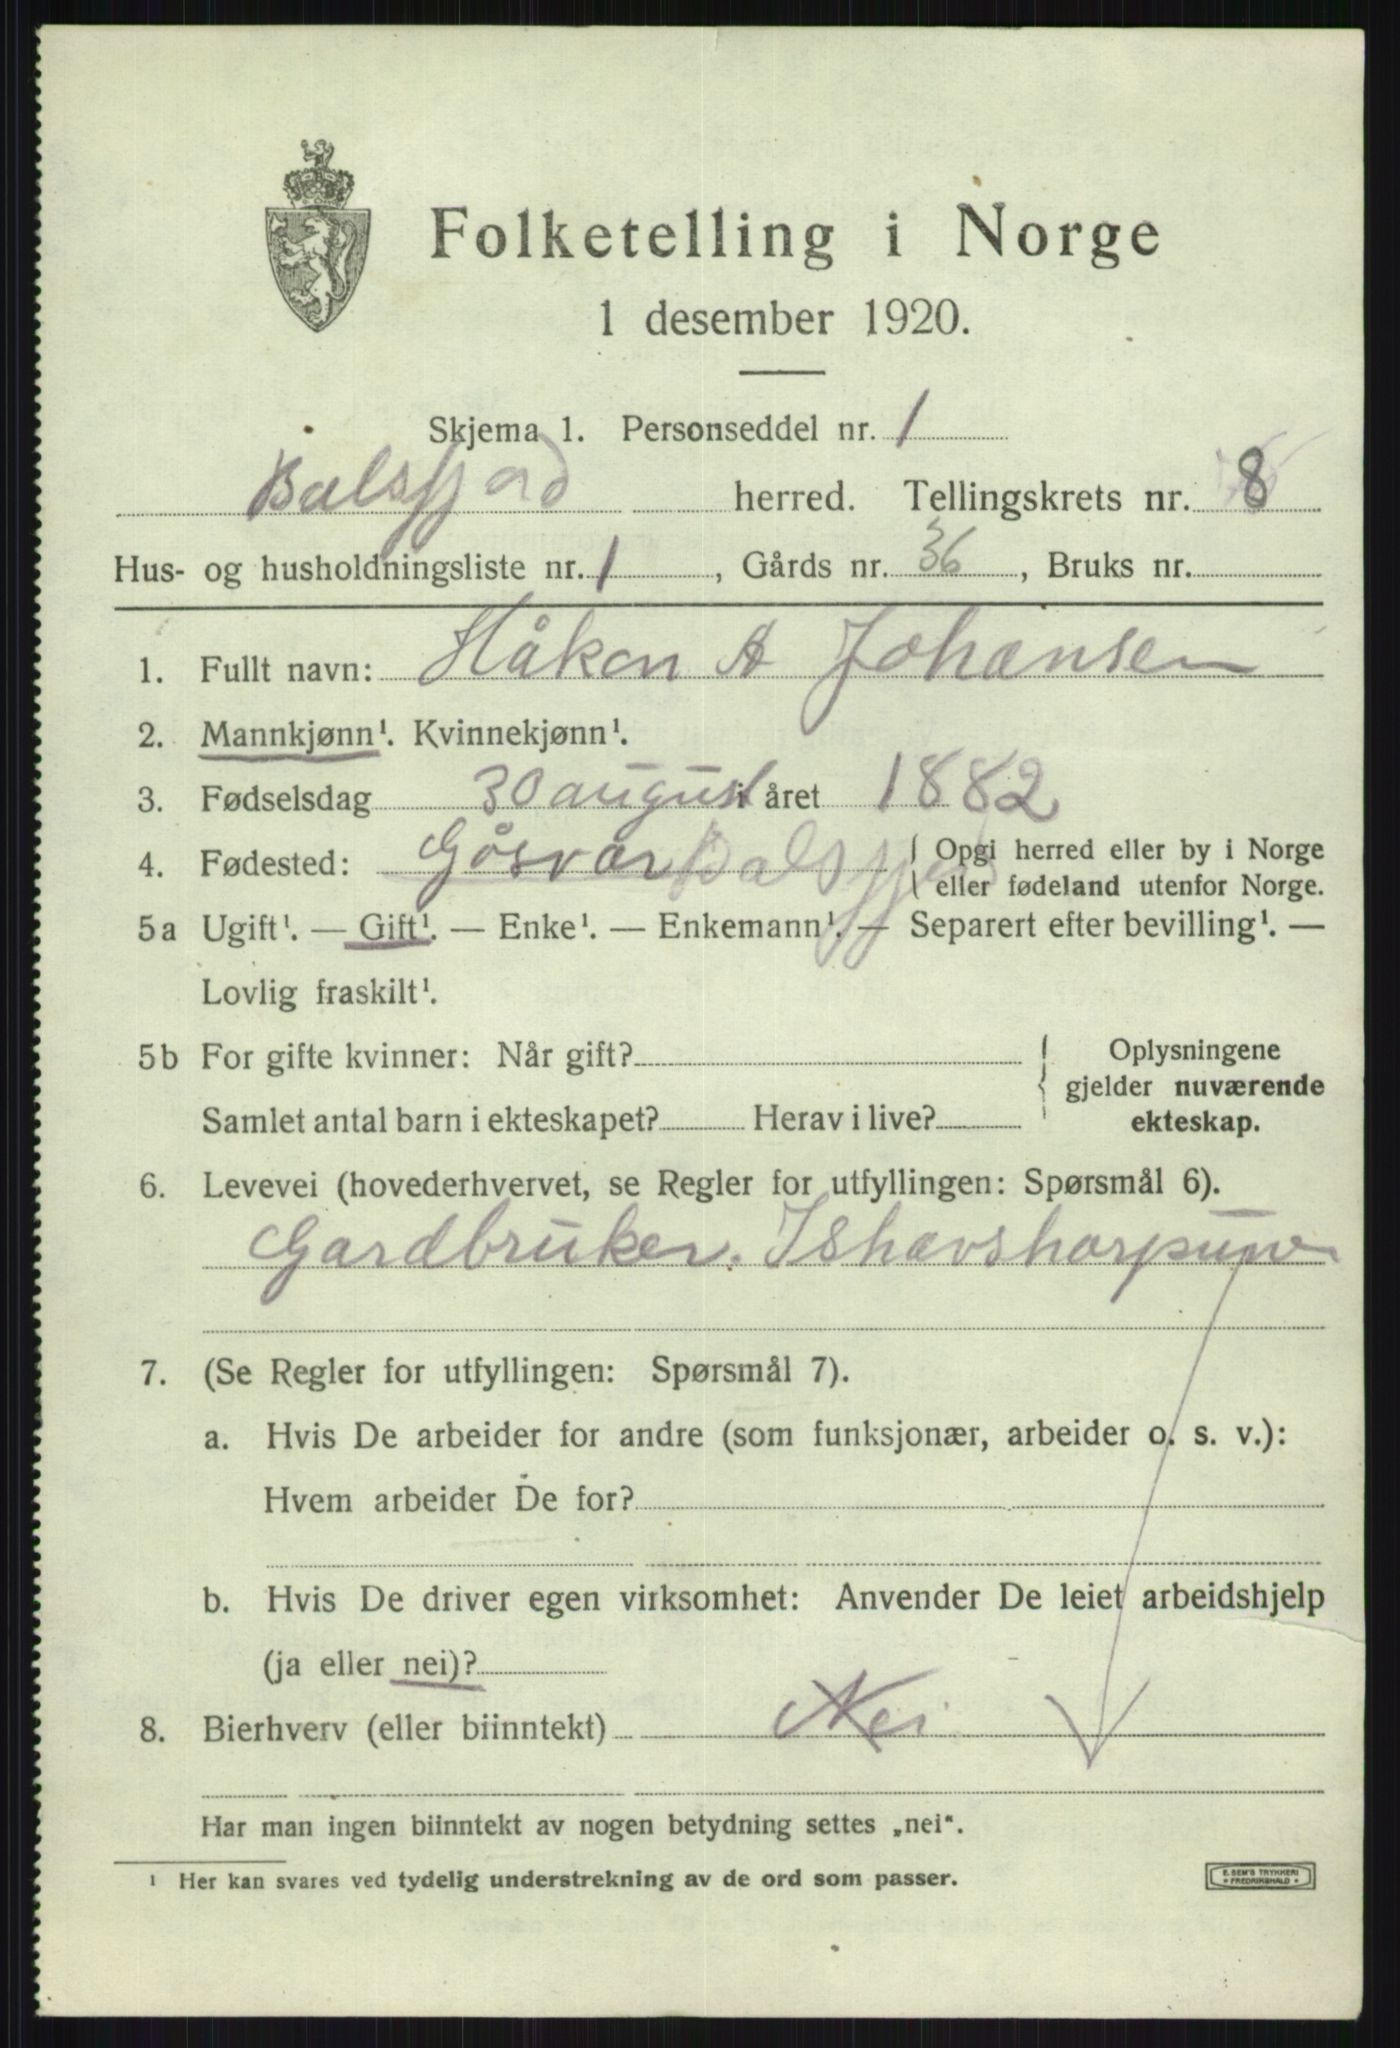 Folketelling i Norge
1 desember 1920.
Skjema 1. Personseddel nr. 1
Balsfjord herred. Tellingskrets nr. 8
Hus- og husholdningsliste nr. 1, Gårds nr. 36, Bruks nr.
1. Fullt navn: Håkon A Johansen
2. Mannkjønn¹. Kvinnekjønn¹.
3. Fødselsdag 30 august i året 1882
4. Fødested: Gåsvær Balsfjord { Opgi herred eller by i Norge
eller fødeland utenfor Norge.
5a Ugift¹. — Gift¹. — Enke¹. — Enkemann¹. — Separert efter bevilling¹. —
Lovlig fraskilt¹.
5b For gifte kvinner: Når gift? { Oplysningene
gjelder nuværende
Samlet antal barn i ekteskapet? Herav i live? ekteskap.
6. Levevei (hovederhvervet, se Regler for utfyllingen: Spørsmål 6).
Gardbruker. Ishavsharpuner
7. (Se Regler for utfyllingen: Spørsmål 7).
a. Hvis De arbeider for andre (som funksjonær, arbeider o. s. v.):
Hvem arbeider De for?
b. Hvis De driver egen virksomhet: Anvender De leiet arbeidshjelp
(ja eller nei)?
8. Bierhverv (eller biinntekt) Nei
Har man ingen biinntekt av nogen betydning settes „nei“.
¹ Her kan svares ved tydelig understrekning av de ord som passer.
E. SEM'S TRYKKERI
FREDRIKSHALD